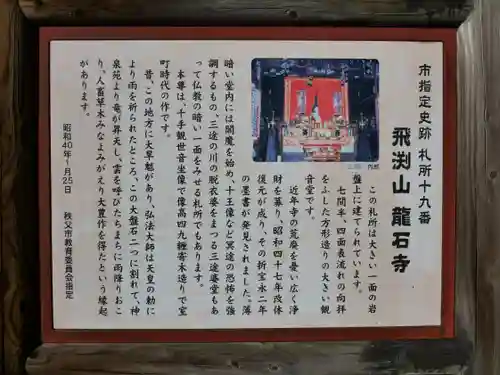 市指定史跡 札所十九番
飛渕山 龍石寺
この札所は大きい一面の岩
盤上に建てられています。
七間半、四面表流れの向拝
をふした方形造りの大きい観
音堂です。
近年寺の荒廃を憂い広く浄
財を募り、昭和四十七年改体
復元が成り、その折宝永二年
の墨書が発見されました。薄
暗い堂内には閻魔を始め、十王像など冥途の恐怖を強
調するもの、三途の川の脱衣婆をまつる三途婆堂もあ
って仏教の暗い一面をみせる札所でもあります。
本尊は、千手観世音坐像で像高四九糎寄木造りで室
町時代の作です。
昔、この地方に大旱魃があり、弘法大師は天皇の勅に
より雨を祈られたところ、この大盤石二つに割れて、神
泉苑より竜が昇天し、雲を呼びたちまちに雨降りおこ
り、人畜草木みなよみがえり大豊作を得たという縁起
があります。
昭和40年1月25日 秩父市教育委員会指定